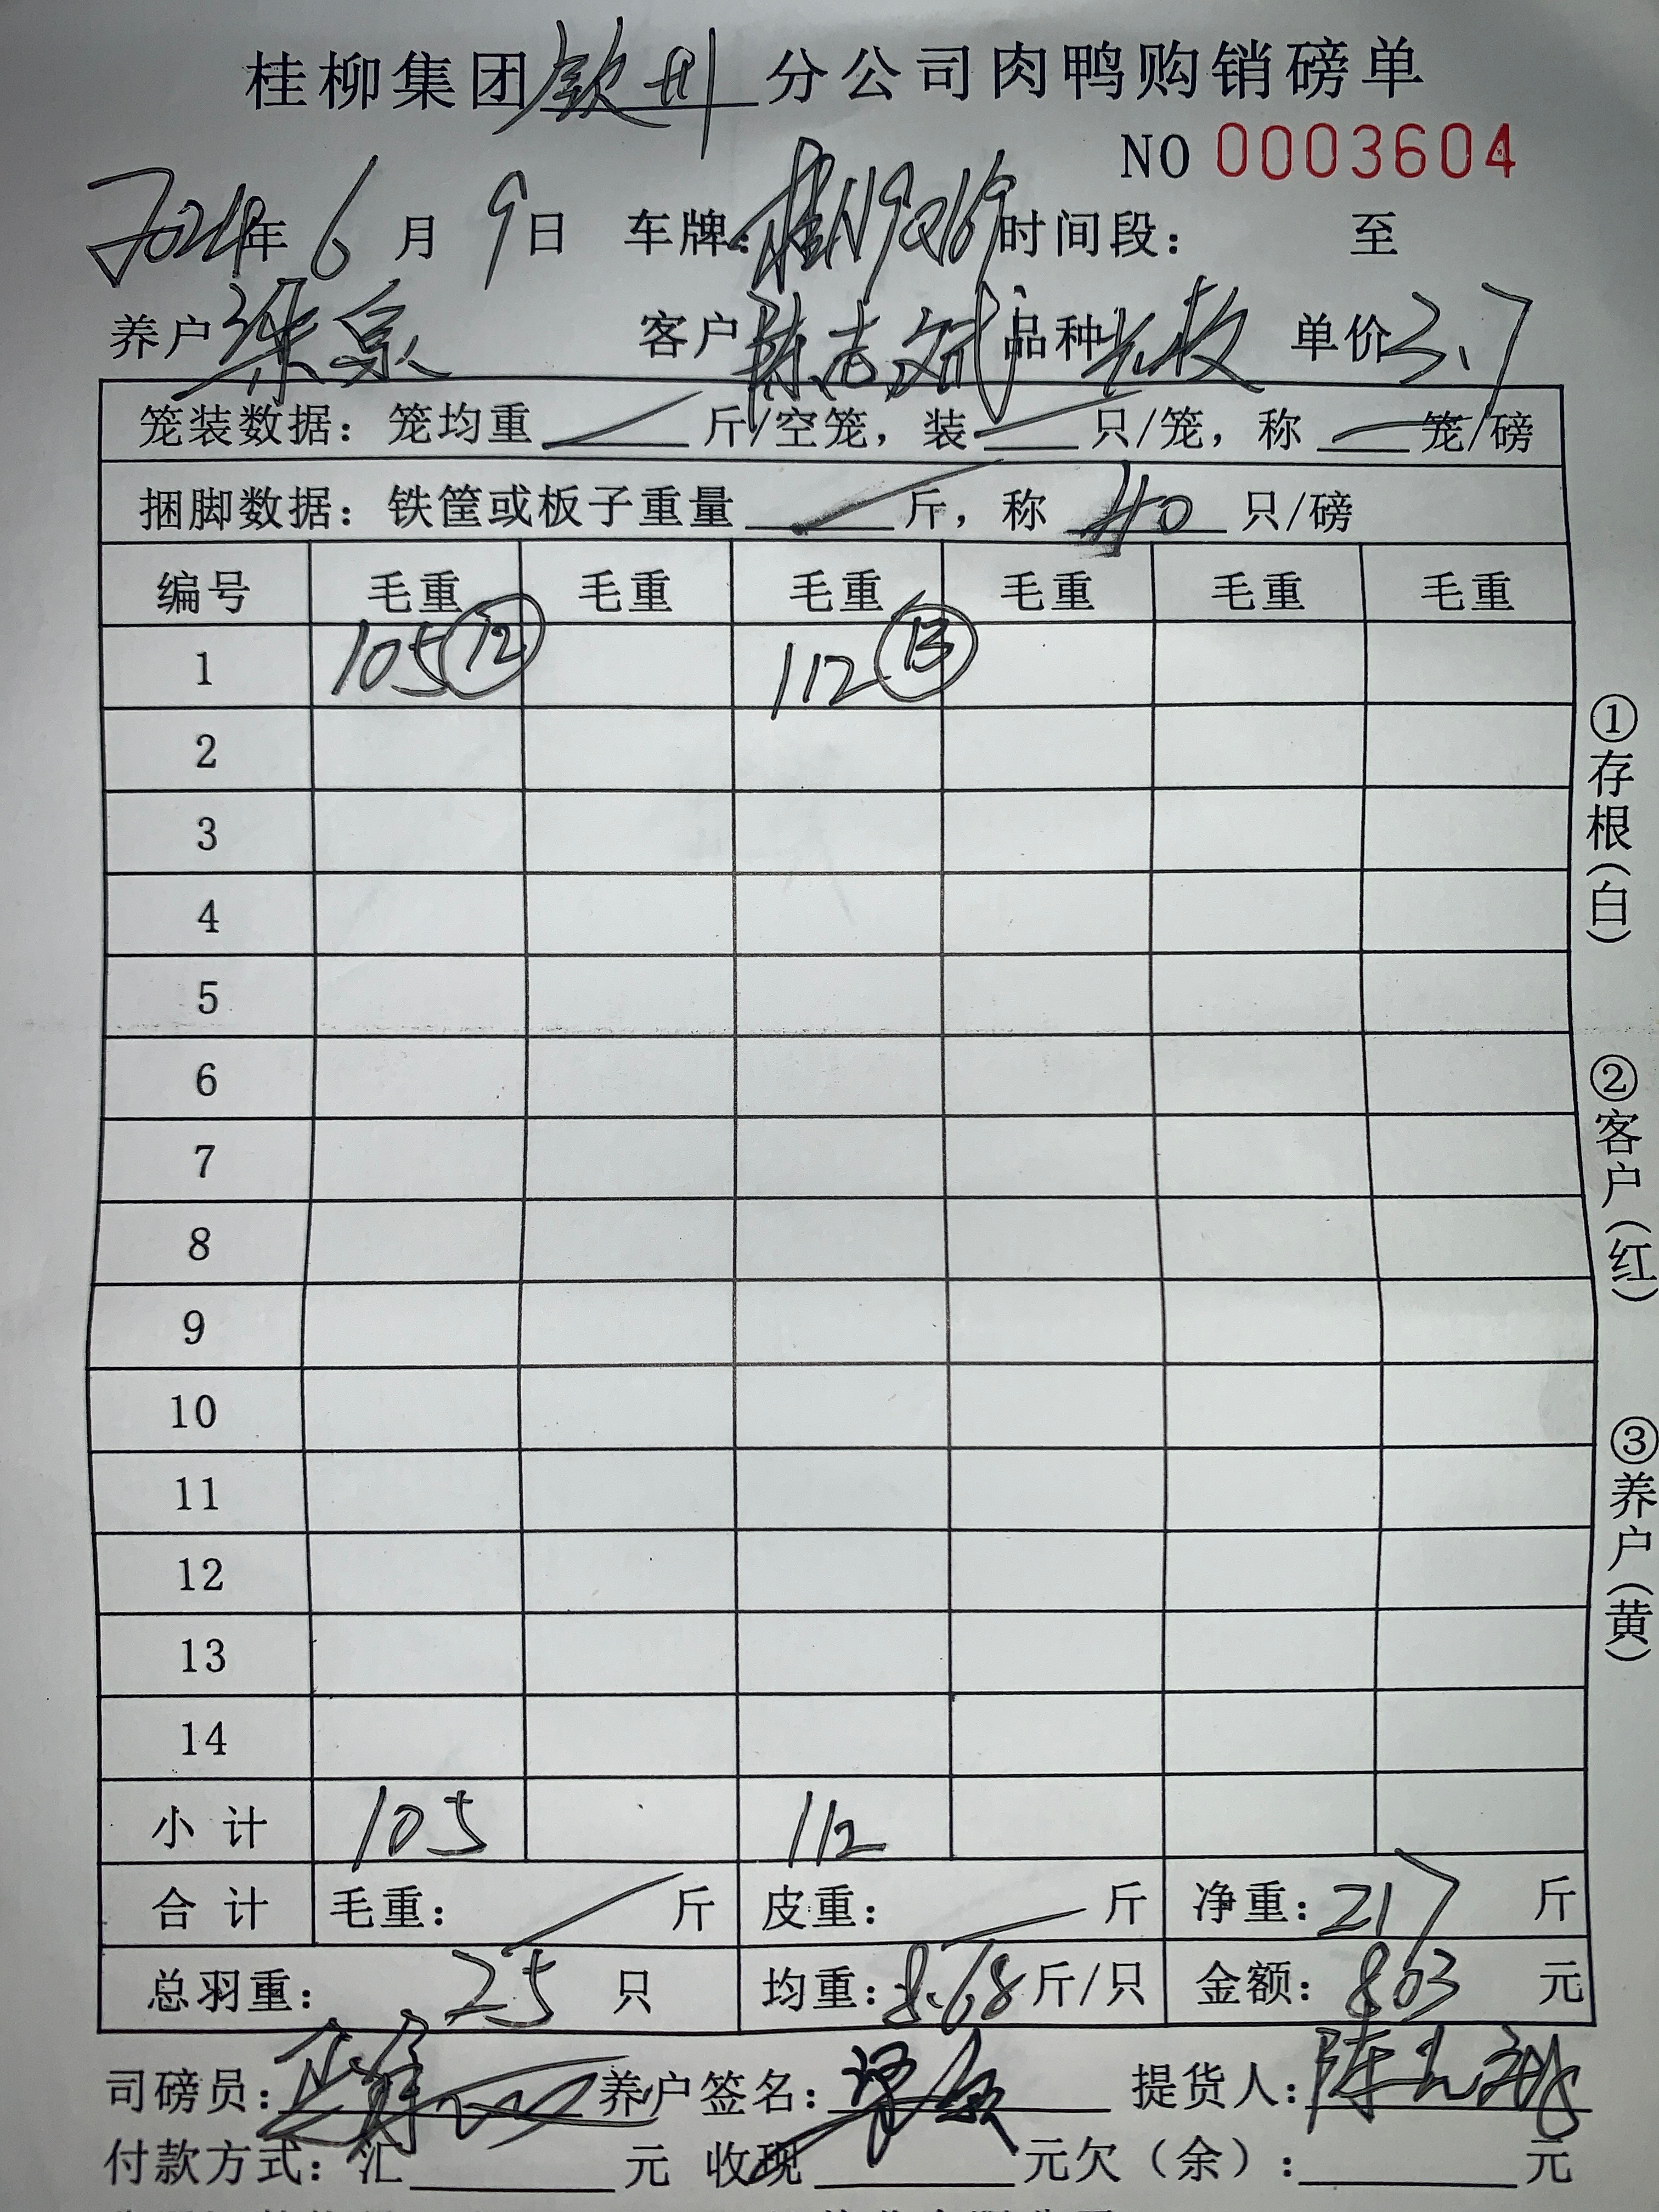 桂柳集团钦州分公司肉鸭购销磅单
NO 0003604
2024年6月9日 车牌:桂N9Q169时间段: 至
养户梁泉 客户陈志斌品种 单价3.7
笼装数据:笼均重 斤/空笼,装 只/笼,称 笼/磅
捆脚数据:铁筐或板子重量 斤,称 40 只/磅
编号 毛重 毛重 毛重 毛重 毛重 毛重
1 105 12 112 13
2
3
4
5
6
7
8
9
10
11
12
13
14
小计 105 112
合计 毛重: 斤 皮重: 斤 净重:217 斤
总羽重: 25 只 均重:8.68斤/只 金额:803 元
司磅员: 养户签名: 提货人:陈
付款方式:汇 元 收现 元欠(余): 元
①存根(白)
②客户(红)
③养户(黄)